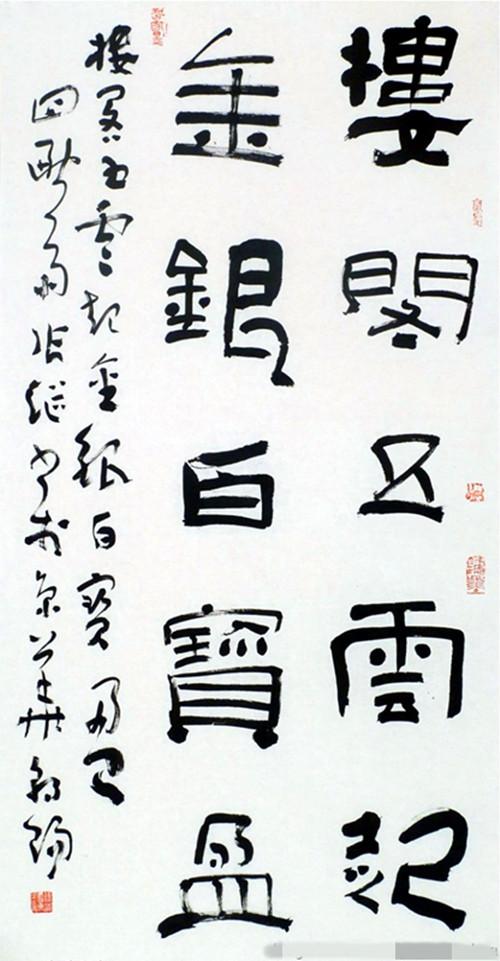 樓閣五雲起
金銀百寶盈
樓閣五雲起金銀百寶盈
張繼書於京